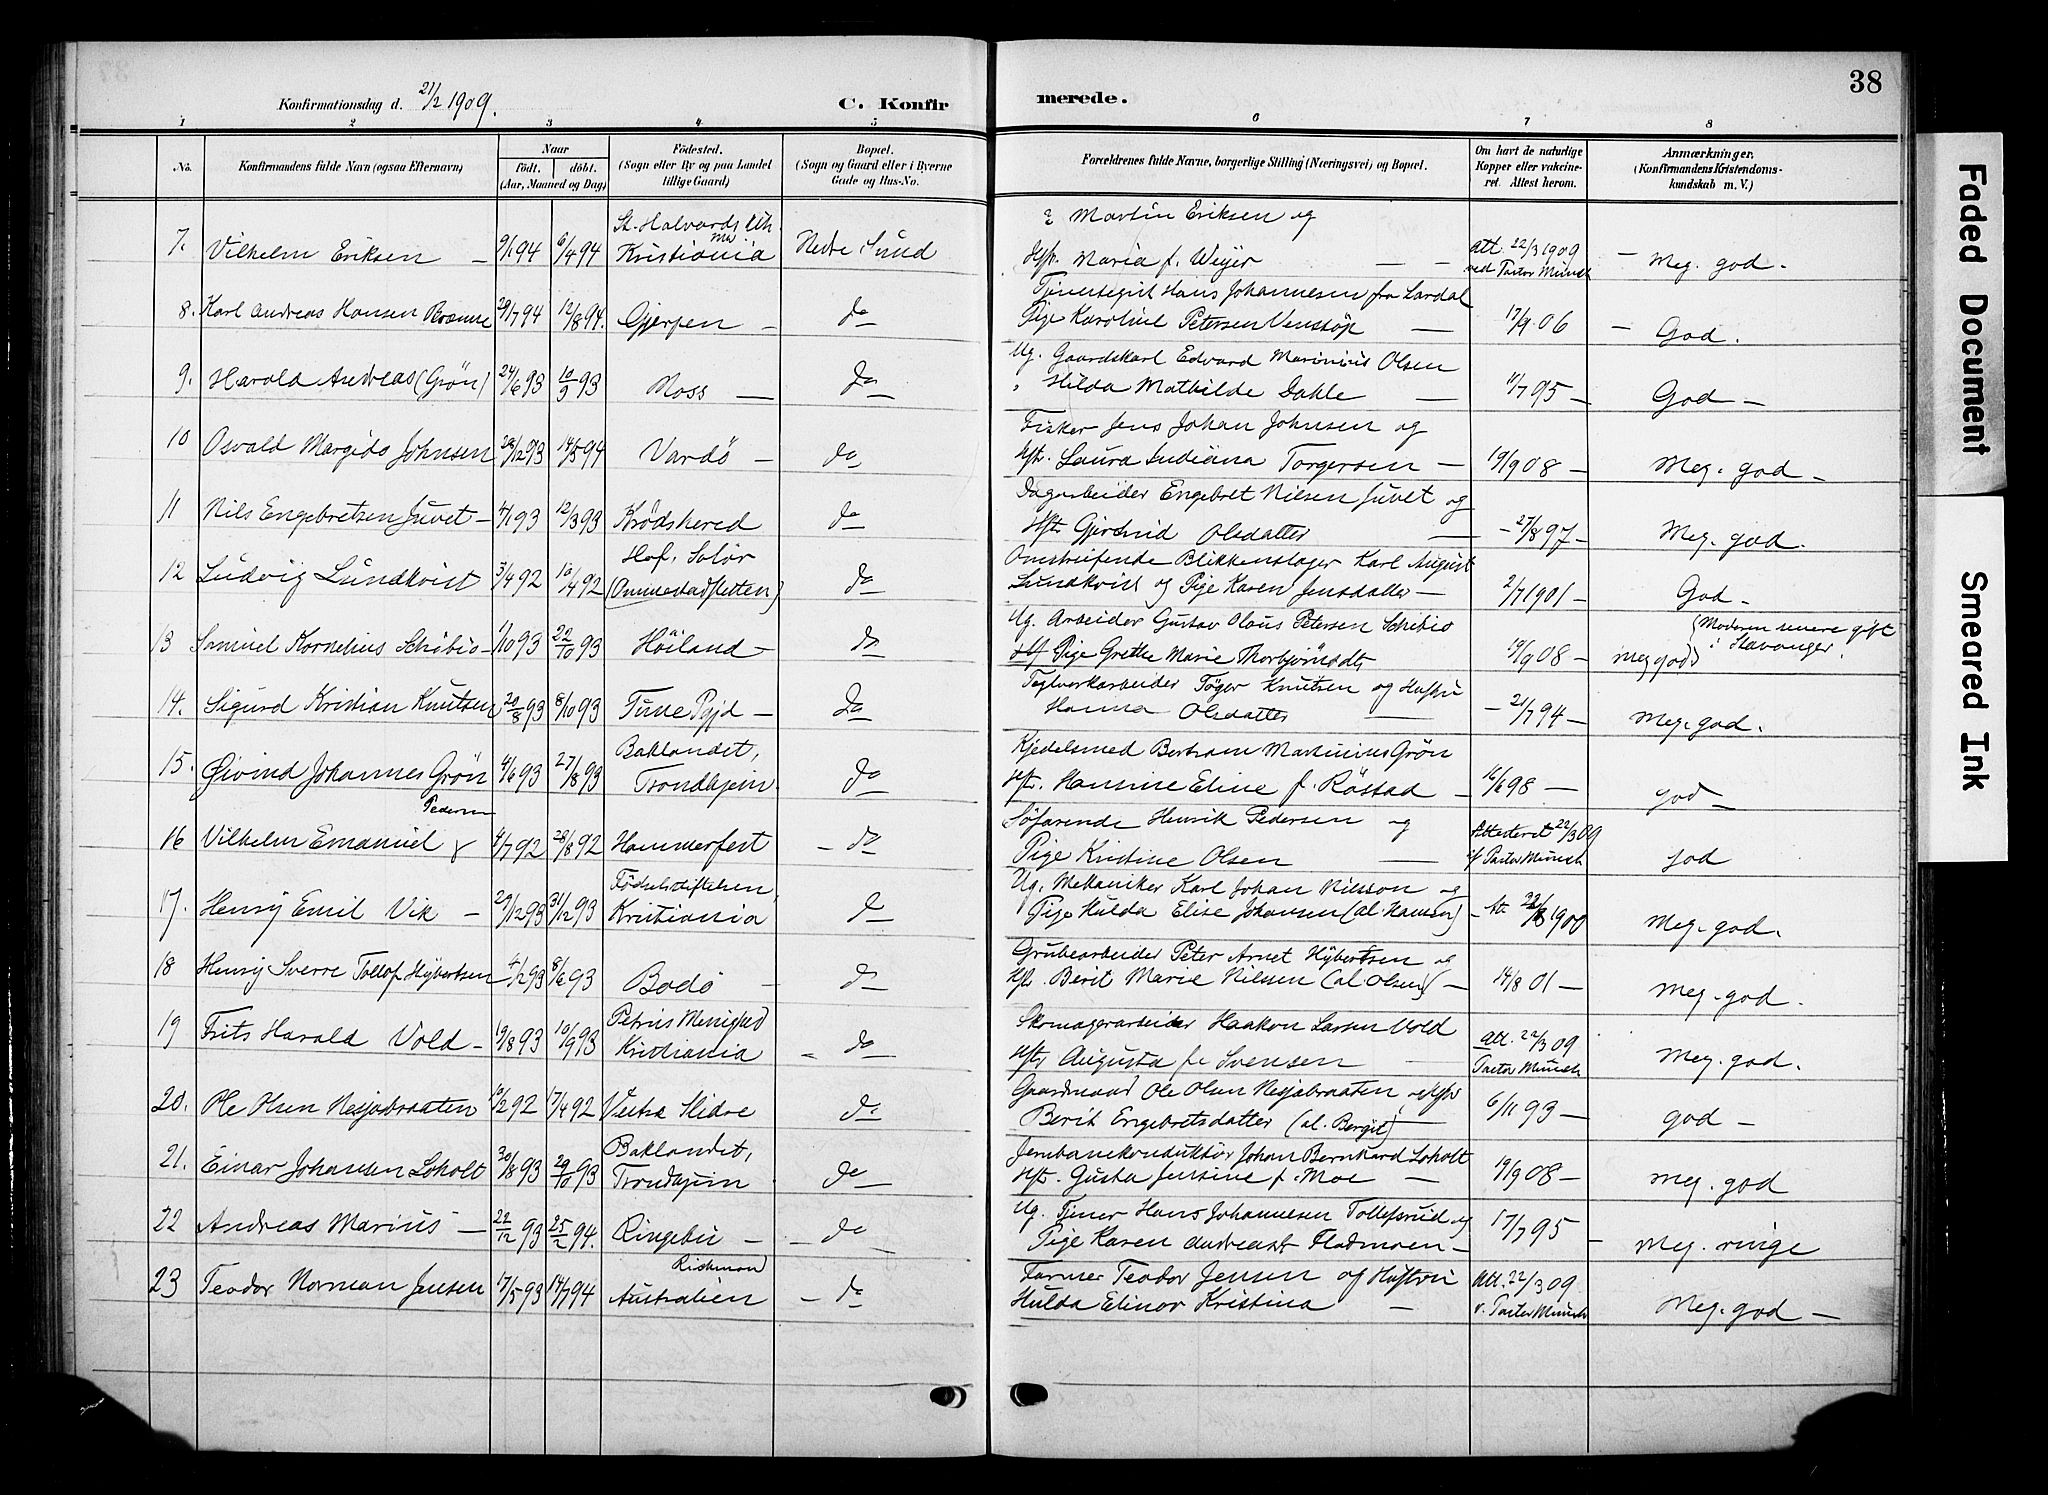 38
Konfirmationsdag d. 21/2 1909.
C. Konfirmerede.
1 2 3 4 5 6 7 8
No.
Konfirmandens fulde Navn (ogsaa Efternavn)
Naar
født. døbt.
(Aar, Maaned og Dag)
Fødested.
(Sogn eller By og paa Landet
tillige Gaard)
Bopæl.
(Sogn og Gaard eller i Byerne
Gade og Hus-No.
Forældrenes fulde Navne, borgerlige Stilling (Næringsvei) og Bopæl.
Om havt de naturlige
Kopper eller vakcineret.
Attest herom.
Anmærkninger,
(Konfirmandens Kristendomskundskab
m. V.)
7. Vilhelm Eriksen — 9/1 94 6/4 94 St. Halvards Kristiania Nedre Sund
Martin Eriksen og
Hst. Maria f. Weyer — — Att. 22/3 1909 ved Pastor Münch — Meg. god.
8. Karl Andreas Hansen 29/7 94 12/8 94. Gjerpen — do
Hans Johannesen fra Lardal
Pige Karoline Petersen Venstøp — 17/9 06 — God.
9. Harald Andreas (Grön) 24/6 93 10/9 93 Moss — do
Ug. Gaardskarl Edvard Marinius Olsen
" Hilda Mathilde Dahle — 11/7 95 — God —
10 Osvald Margido Johnsen 29/12 93 14/5 94 Vardö — do
Fisker Jens Johan Johnsen og
Hst. Laura Indiana Torgersen — 19/9 08 — Meg. god —
11 Nils Engebretsen Juvet — 4/1 93 12/3 93 Krödshered do
Dagarbeider Engebret Nilsen Juvet og
Hst. Gjertrud Olsdatter — — 27/8 97 — Meg. god.
12 Ludvig Lundkvist 3/4 92 10/4 92 Hof, Solör do
Omstreifende Blikkenslager Karl August
Lundkvist og Pige Karen Jensdatter — 2/7 1901 — God —
13 Samuel Kornelius Schibio — 1/10 93 22/10 93 Höiland — do
Ug. Arbeider Gustav Olaus Petersen Schibio
Pige Grethe Marie Thorbjörnsdtr 19/9 08 — meg god (Moderen senere gift i Stavanger.
14. Sigurd Kristian Knutsen 20/8 93 8/10 93 Tune Pgjd — do
Teglverkarbeider Töger Knutsen og Hustru
Hanna Olsdatter — — 21/7 94 — Meg. god.
15. Øivind Johannes Grön 4/6 93 27/8 93 Baklandet, Trondhjem do
Kjedelsmed Bertram Martinius Grön
Hst. Hansine Eline f. Röstad — 16/6 98 — god —
16 Vilhelm Emanuel Pedersen 4/7 92 28/8 92 Hammerfest — do
Söfarende Henrik Pedersen og
Pige Kristine Olsen — Attesteret 22/3 09 Pastor Münch god
17. Henry Emil Vik — 29/12 93 31/12 93 Födselsstiftelsen, Kristiania do
Ug. Mekaniker Karl Johan Nilsson og
Pige Hulda Elise Johansen (al. Hansen) — Att. 22/8 1900 Meg. god.
18 Henry Sverre Tollof Hybertsen 4/2 93 8/6 93 Bodö — do
Grubearbeider Peter Arnet Hybertsen og
Hst. Berit Marie Nilsen (al Olsen) — 14/8 01 — Meg. god.
19 Frits Harald Vold — 19/8 93 10/9 93 Petrus Menighed Kristiania — do
Skomagerarbeider Haakon Larsen Vold
Hst. Augusta f. Svensen — Att. 22/3 09 Pastor Münch Meg. god.
20. Ole Olsen Nesjabraaten 10/2 92 17/4 92 Vestre Slidre do
Gaardmand Ole Olsen Nesjabraaten og Hst
Berit Engebretsdatter (al. Bergit) — 6/11 93 — god —
21. Einar Johansen Loholt 30/8 93 29/10 93 Baklandet, Trondhjem do
Jernbanekonduktör Johan Bernhard Loholt
Hst. Gusta Jensine f. Moe — 19/9 08 — Meg. god
22 Andreas Marius — 22/12 93 25/2 94. Ringebu — — do
Ug. Tjener Hans Johannesen Tollefsrud og
Pige Karen Andreasdt. Fladmoen — 17/7 95 — Meg. ringe
23 Teodor Norman Jensen 17/5 93 14/7 94 Richmond Australien — do
Farmer Teodor Jensen og Hustru
Hulda Elinor Kristina — Att. 22/3 09 v. Pastor Münch Meg. god —
Faded Document
Smeared Ink